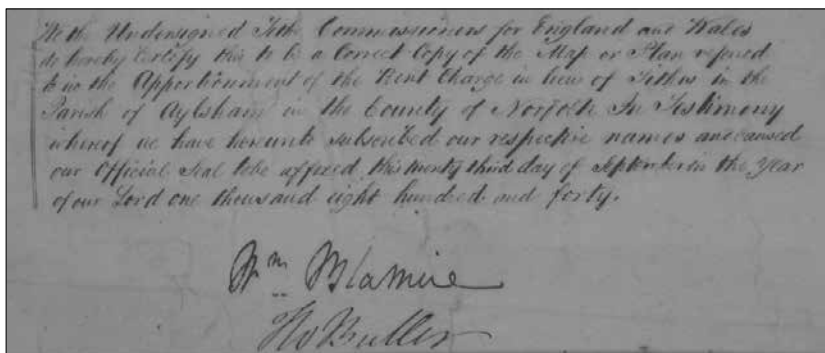 We the Undersigned Tithe Commissioners for England and Wales
do hereby Certify this to be a Correct Copy of the Map or Plan referred
to in the Apportionment of the Rent Charge in lieu of Tithes in the
Parish of Aylsham in the County of Norfolk In Testimony
whereof we have hereunto subscribed our respective names and caused
our Official Seal to be affixed this twenty third day of September in the Year
of our Lord one thousand eight hundred and forty.
Wm Blamire
Buller